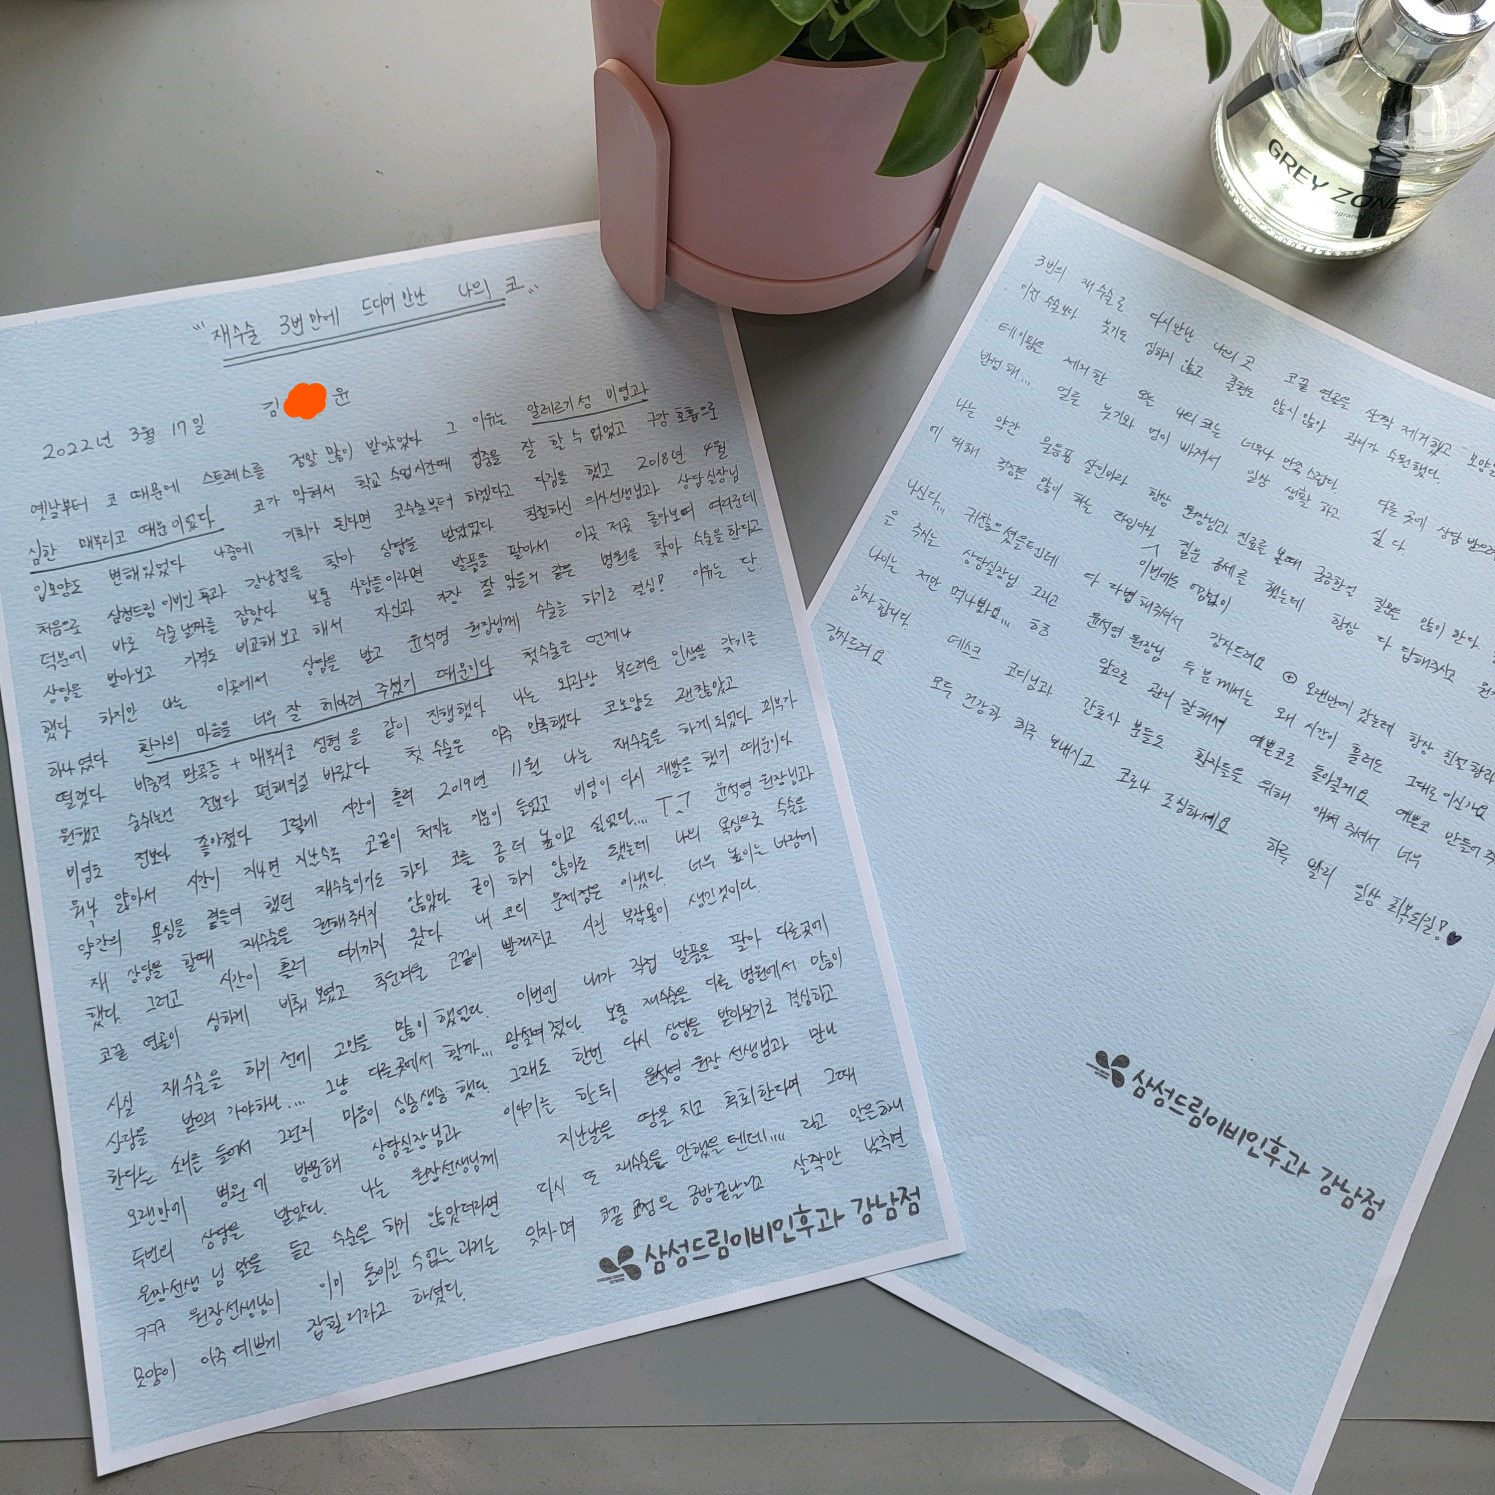 "재수술 3번만에 드디어 만난 나의 코"
2022년 3월 17일 김 윤
옛날부터 코 때문에 스트레스를 정말 많이 받았었다 그 이유는 알레르기성 비염과
심한 매부리코 때문이었다 코가 막혀서 학교 수업시간때 집중을 잘 할 수 없었고 구강호흡으로
입모양도 변해있었다 나중에 기회가 된다면 코수술부터 하겠다고 다짐을 했고 2018년 4월
처음으로 삼성드림 이비인후과 강남점을 찾아 상담을 받았었다 친절하신 의사선생님과 상담실장님
덕분에 바로 수술날짜를 잡았다 보통 사람들이라면 발품을 팔아서 이곳 저곳 돌아보며 여러군데
상담을 받아보고 가격도 비교해보고 해서 자신과 가장 잘 맞을거 같은 병원을 찾아 수술을 한다고
했다 하지만 나는 이곳에서 상담을 받고 윤석영 원장님께 수술을 하기로 결심! 이유는 단.
하나였다 환자의 마음을 너무 잘 헤아려 주셨기 때문이다 첫수술은 언제나
떨렸다 비중격 만곡증 + 매부리코 성형을 같이 진행했다 나는 외관상 부드러운 인상을 갖기를
원했고 숨쉬는건 전보다 편해지길 바랐다 첫 수술은 아주 만족했다 코모양도 괜찮았고
비염도 전보다 좋아졌다 그렇게 시간이 흘러 2019년 11월 나는 재수술을 하게되었다 피부가
워낙 얇아서 시간이 지나면 지날수록 코끝이 처지는 기분이 들었고 비염이 다시 재발을 했기 때문이다
약간의 욕심을 곁들여 했던 재수술이기도 하다 코를 좀 더 높이고 싶었다.... T.T 윤석영 원장님과
재 상담을 할때 재수술을 권해주시지 않았다 굳이 하지 않아도 됐는데 나의 욕심으로 수술을
했다. 그리고 시간이 흘러 여기까지 왔다 내 코의 문제점은 이랬다. 너무 높이는 바람에
코끝 연골이 심하게 비춰 보였고 추운겨울 코끝이 빨개지고 시린 부작용이 생긴것이다.
사실 재수술을 하기 전에 고민을 많이 했었다. 이번엔 내가 직접 발품을 팔아 다른곳에
상담을 받으러 가야하나.... 그냥 다른곳에서 할까... 망설여졌다 보통 재수술을 다른 병원에서 많이
한다는 소리를 들어서 그런지 마음이 싱숭생숭 했다. 그래도 한번 다시 상담을 받아보기로 결심하고
오랜만에 병원에 방문해 상담실장님과 이야기를 한뒤 윤석영 원장 선생님과 만나
두번의 상담을 받았다. 나는 원장선생님께 지난날을 땅을 치고 후회한다며 그때
원장선생님 말을 듣고 수술을 하지 않았더라면 다시 또 재수술을 안했을텐데.... 라고 말을하니
ㅋㅋㅋ 원장선생님이 이미 돌이킬 수 없는 과거는 잊자며 코끝 교정은 금방끝날거고 살짝만 낮추면
모양이 아주 예쁘게 잡힐거라고 하셨다.
삼성드림이비인후과 강남점
3번의 재수술로 다시만난 나의 코 코끝 연골을 살짝 제거했고 모양
이전 수술보다 붓기도 심하지 않고 출혈도 많지 않아 관리가 수월했다.
테이핑을 제거한 오늘 나의 코는 너무나 만족스럽다 다른 곳에 상담 받으러
반성해... 얼른 붓기와 멍이 빠져서 일상 생활 하고 싶다.
나는 약간 물음표 살인마라 항상 원장님과 진료를 볼때 궁금한점 질문을 많이 한다.
에 대해 걱정을 많이 하는 타입이라 이번에도 어김없이 질문 공세를 했는데 항상 다 답해주시고
나신다... 귀찮으셨을텐데 다 답해주셔서 감사드려요 ⊕ 오랜만에 갔는데 항상 친절하
은 하는 상담실장님 그리고 윤석영 원장님 두 분께서는 왜 시간이 흘러도 그대로이신가요
나이는 저만 먹나봐요... ㅎㅎ 앞으로 관리 잘해서 예쁜코로 돌아올게요 예쁜코 만들어 주
감사합니다. 데스크 코디님과 간호사 분들도 환자들을 위해 애써 주셔서 너무
감사드려요 모두 건강한 하루 보내시고 코로나 조심하세요 하루 빨리 일상 회복되길!♥
삼성드림이비인후과 강남점
GREY ZONE